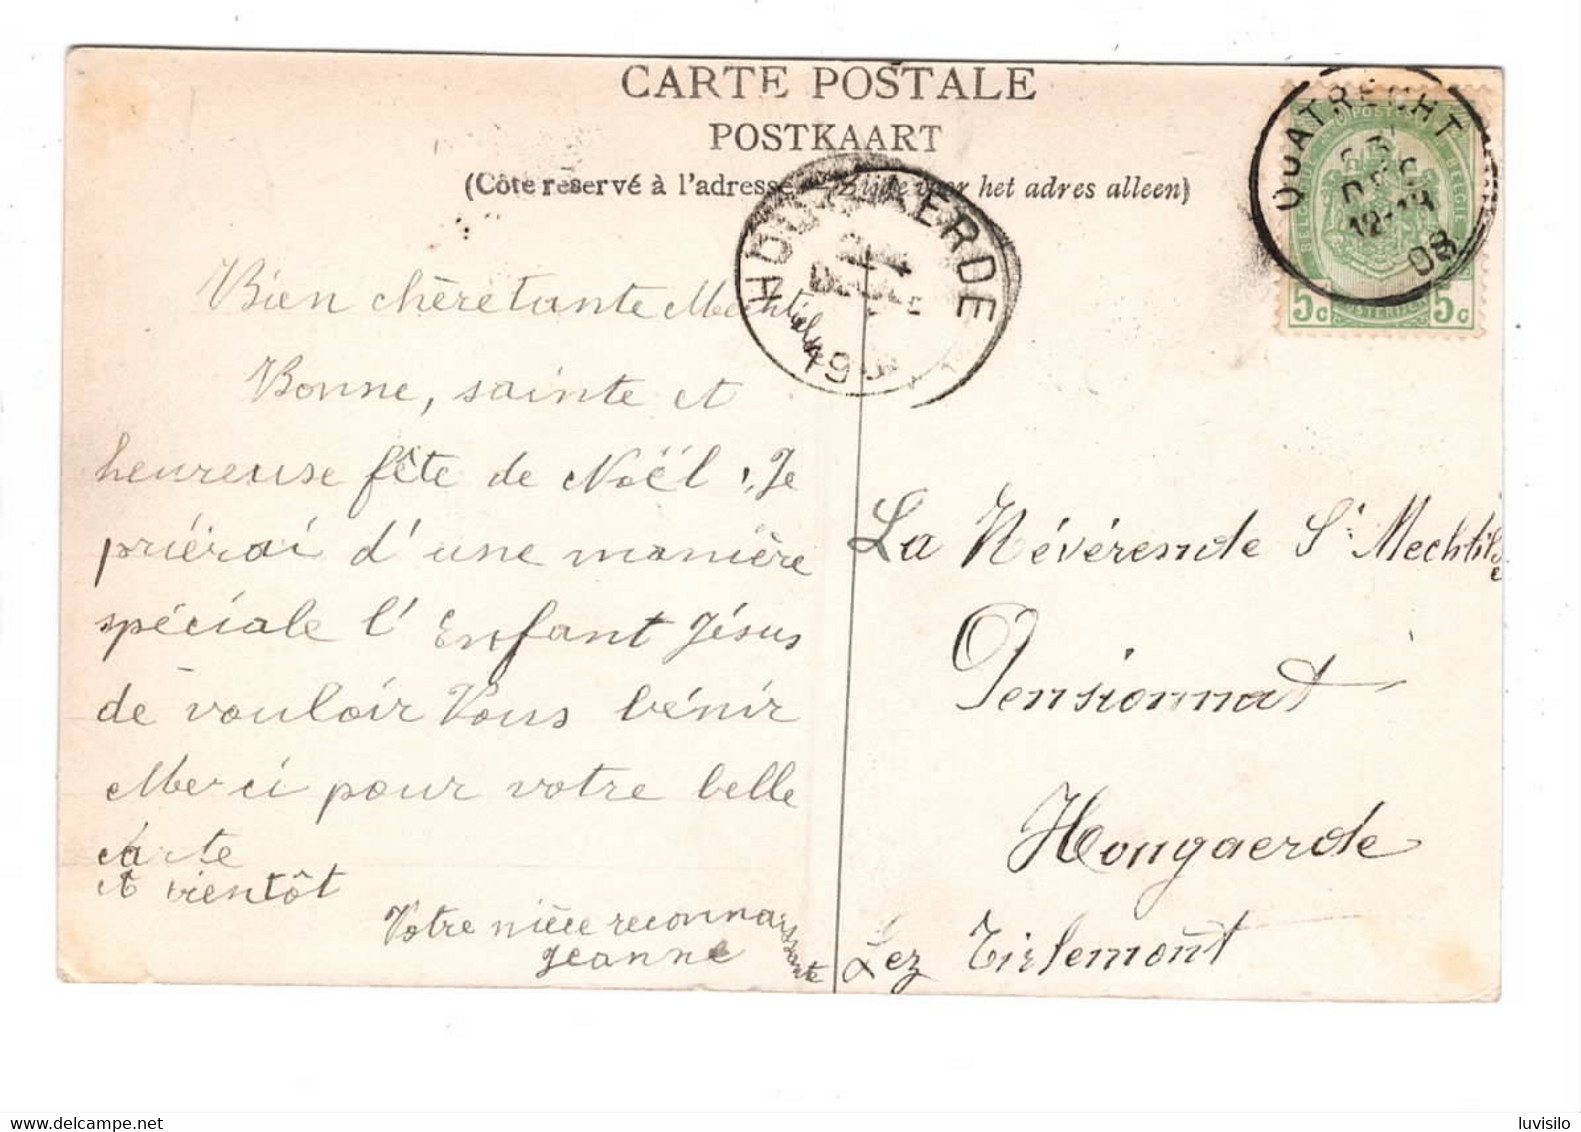 CARTE POSTALE
POSTKAART
(Côté réservé à l'adresse — Zijde voor het adres alleen)
QUATRECHT
DEC
12-13
08
BELGIE
5c 5c
HOUGAERDE
Bien chère tante Mechtilde
Bonne, sainte et
heureuse fête de Noël ! Je
priérai d'une manière
spéciale l'Enfant Jésus
de vouloir Vous bénir
Merci pour votre belle
carte
et bientôt
Votre nièce reconnaissante
Jeanne
La Révérende Sr Mechtilde
Pensionnat
Hougaerde
Lez Tirlemont
luvisilo